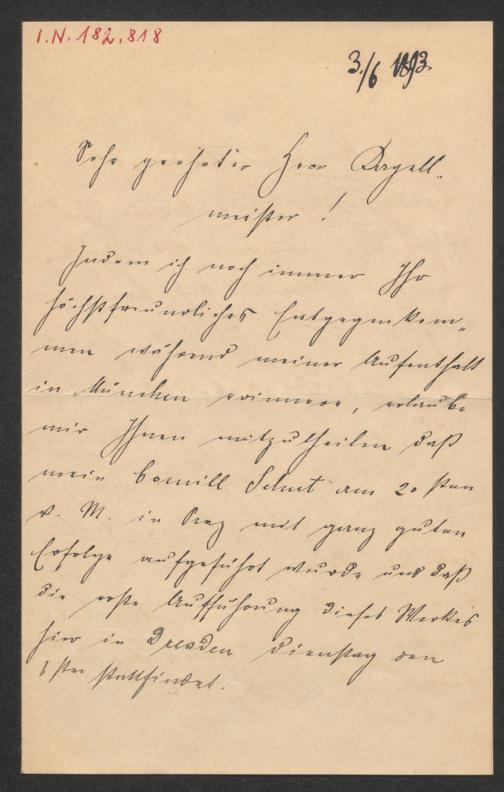 I.N. 182.818
3./6 1893.
Sehr geehrter Herr Capell-
meister!
Indem ich noch immer Ihr
höchstfreundliches Entgegenkom-
men während meiner Aufenthalt
in München erinnere, erlaube
mir Ihnen mitzutheilen daß
mein Cornill Schut am 20 sten
v. M. in Prag mit ganz guten
Erfolge aufgeführt wurde und daß
die erste Aufführung dieses Werkes
hier in Dresden Dienstag den
6 sten stattfindet.